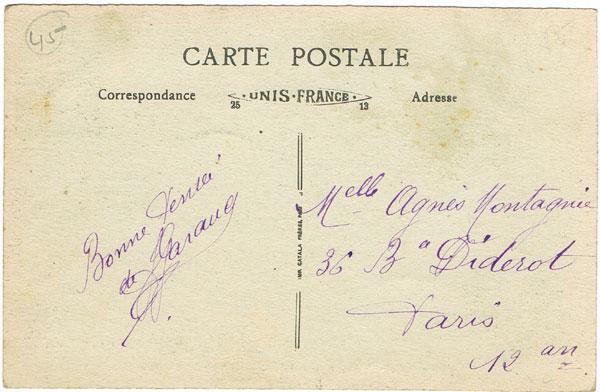 45
CARTE POSTALE
Correspondance
· UNIS · FRANCE ·
25 13
Adresse
Bonne
de
IMP. CATALA FRÈRES, PARIS
Melle Agnès Montagnie
36 Bd Diderot
Paris
12 arr